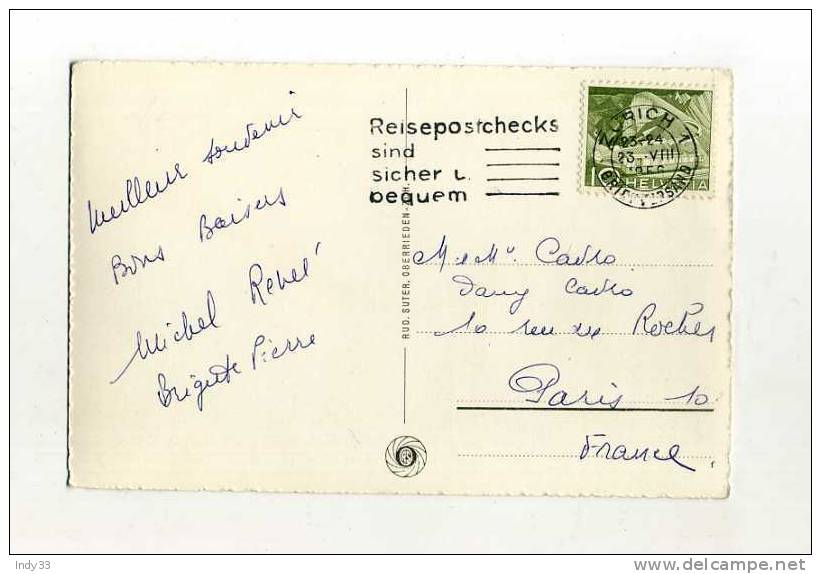 Meilleur souvenir
Bons Baisers
Michel René
Brigitte Pierre
Reisepostchecks
sind
sicher u.
bequem
ZÜRICH 1
23-24
VIII
BRIEFVERSAND
HELVETIA
RUD. SUTER, OBERRIEDEN-ZCH.
M et Me Castro
Dany Castro
10 rue
Paris 10
France
Indy33
www.delcampe.net